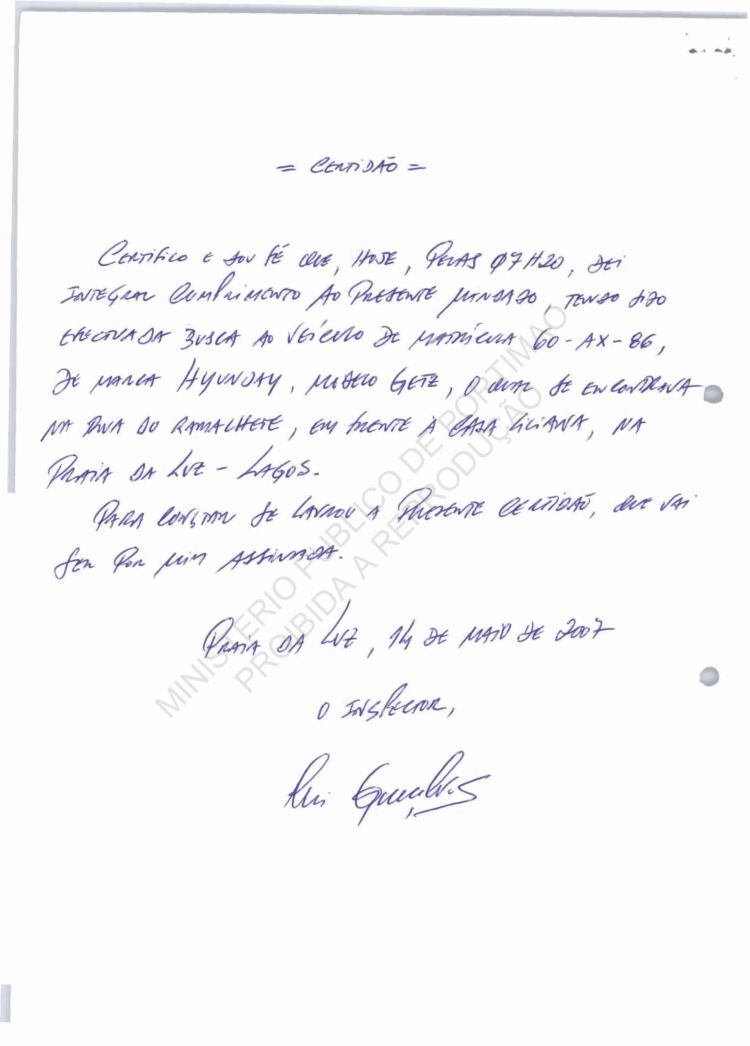 = CERTIDÃO =
CERTIFICO E DOU FÉ QUE, HOJE, PELAS 07H20, DEI
INTEGRAL CUMPRIMENTO AO PRESENTE MANDADO, TENDO SIDO
EFECTUADA BUSCA AO VEÍCULO DE MATRÍCULA 60-AX-86,
DE MARCA HYUNDAY, MODELO GETZ, O QUAL SE ENCONTRAVA
NA RUA DO RAMALHETE, EM FRENTE À CASA LILIANA, NA
PRAIA DA LUZ - LAGOS.
PARA CONSTAR SE LAVROU A PRESENTE CERTIDÃO, QUE VAI
SER POR MIM ASSINADA.
PRAIA DA LUZ, 14 DE MAIO DE 2007
O INSPECTOR,
Rui Gonçalves
MINISTÉRIO PUBLICO DE PORTIMAO
PROIBIDA A REPRODUÇÃO